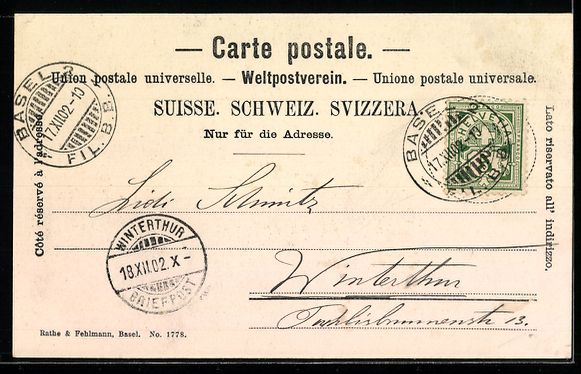 — Carte postale. —
Union postale universelle. — Weltpostverein. — Unione postale universale.
SUISSE. SCHWEIZ. SVIZZERA.
Nur für die Adresse.
Côté réservé à l'adresse.
Lato riservato all' indirizzo.
BASEL 2
17.XII.02.-10
FIL. B.B.
BASEL 2
17.XII.02.-10
FIL. B.B.
HELVETIA
Lidi Schmitz
WINTERTHUR
18.XII.02.X-
BRIEFPOST
Winterthur
13.
Rathe & Fehlmann, Basel. No. 1778.